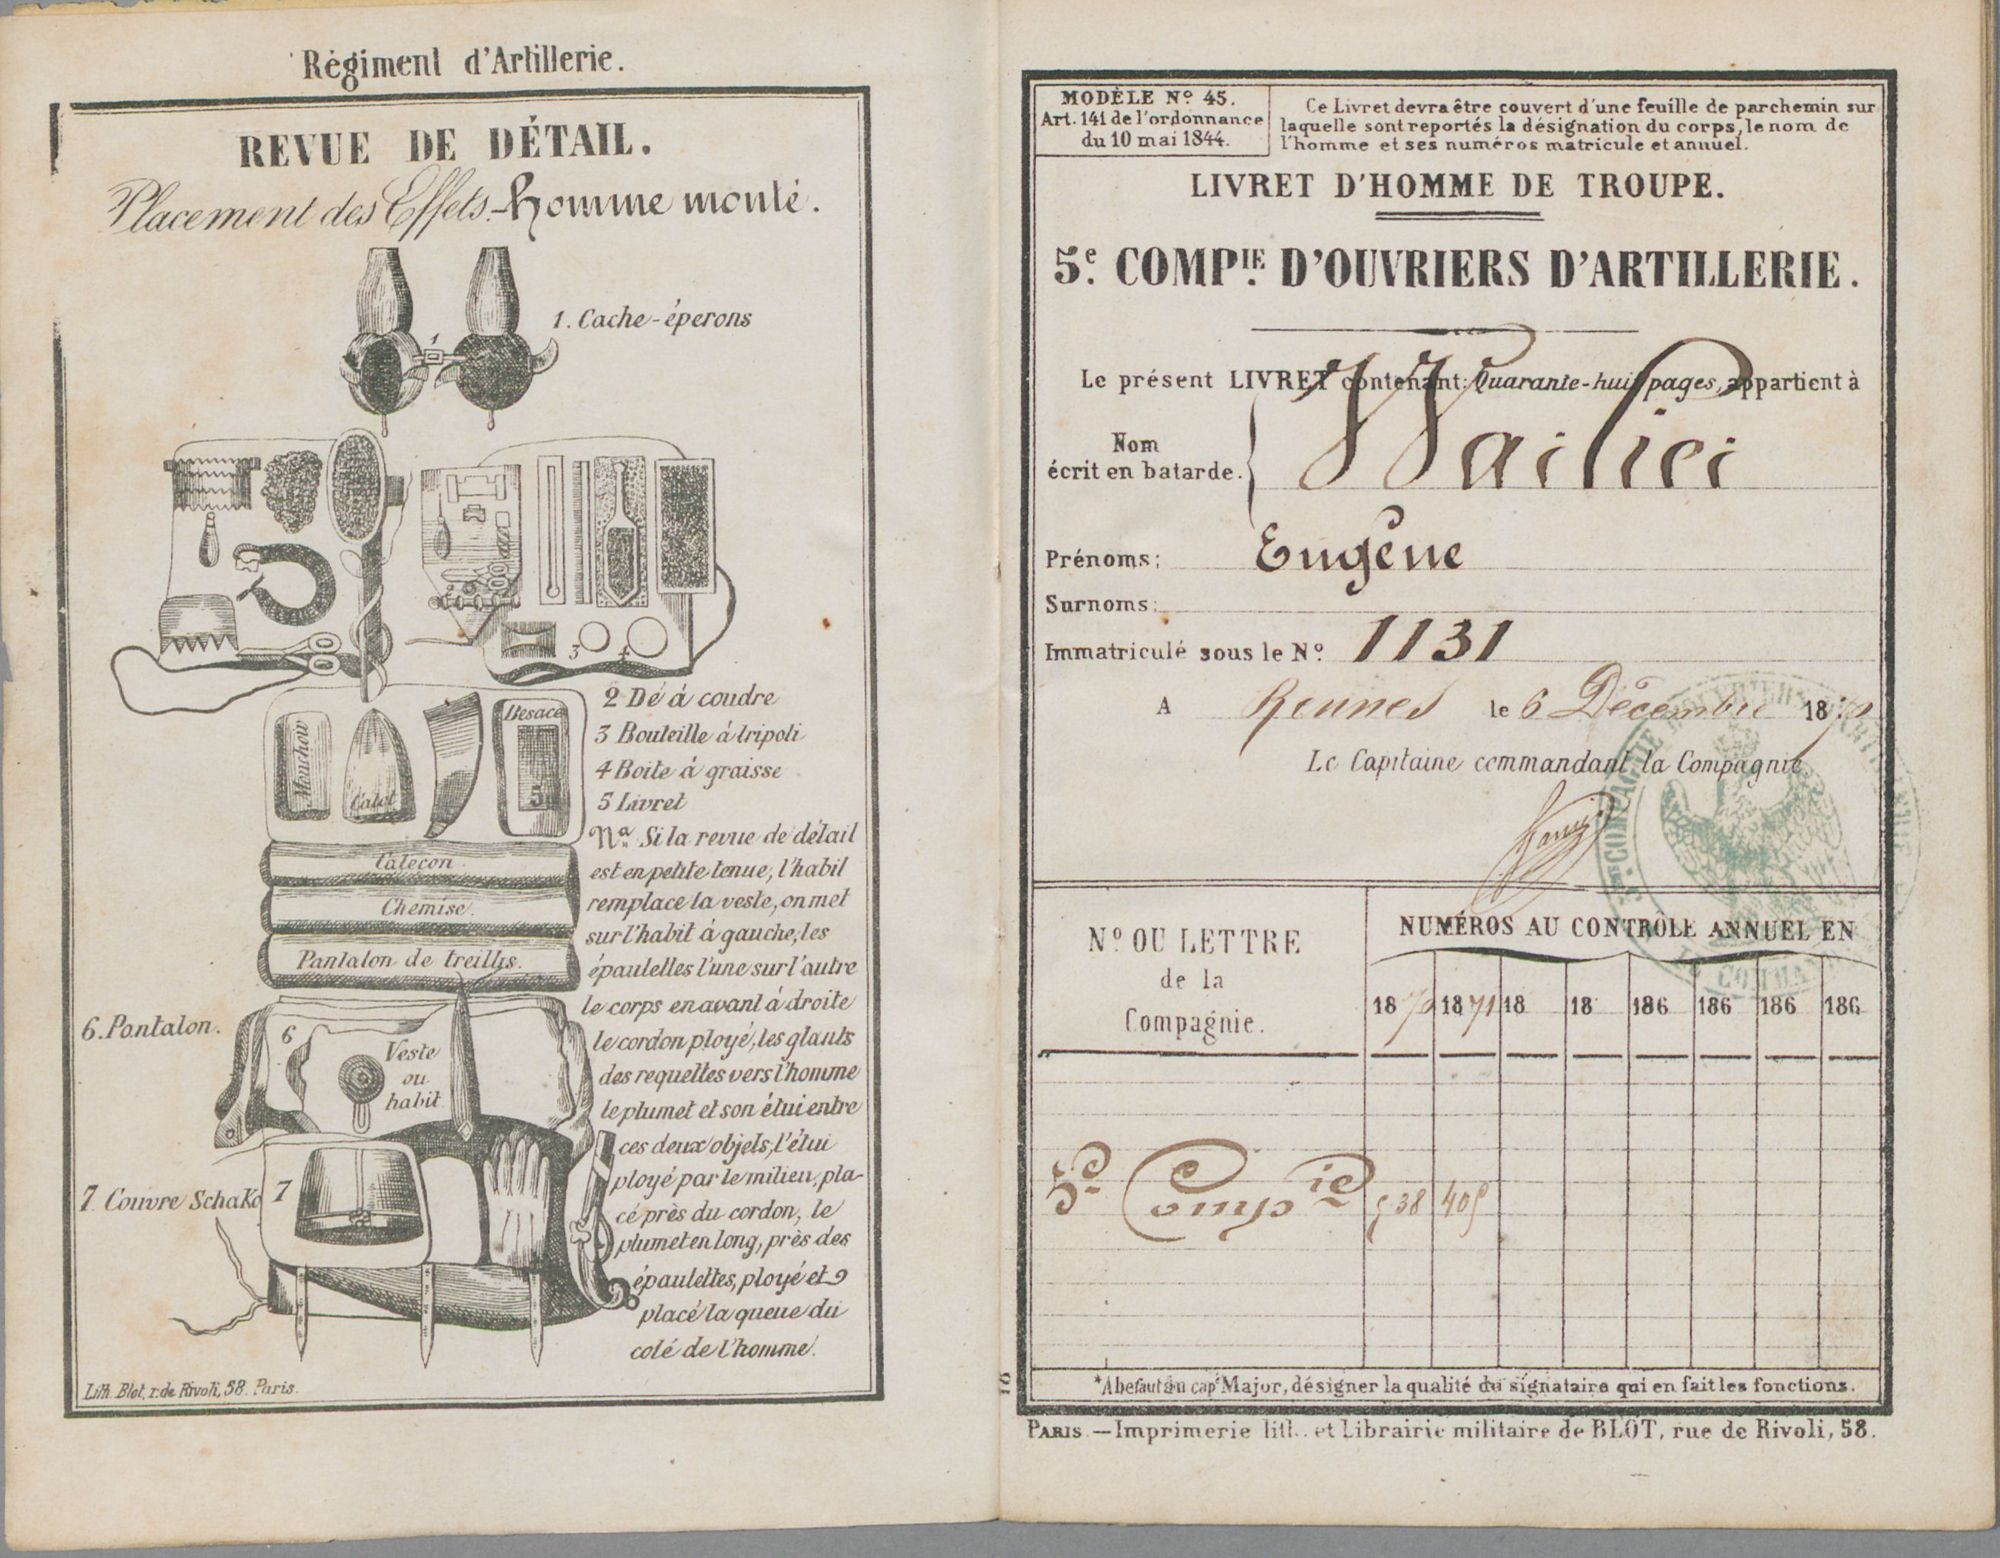 Régiment d'Artillerie.
REVUE DE DÉTAIL.
Placement des Effets.-homme monté.
1
1. Cache-éperons
3
4
2 Dé à coudre
3 Bouteille à tripoli
4 Boite à graisse
5 Livret
Mouchoir
Calot
Besace
5
Calecon
Chemise.
Pantalon de treillis.
Nª Si la revue de détail
est en petite tenue, l'habit
remplace la veste, on met
sur l'habit à gauche, les
épaulettes l'une sur l'autre
le corps en avant à droite
le cordon ployé, les glants
des requettes vers l'homme
le plumet et son étui entre
ces deux objets, l'étui
ployé par le milieu, pla-
cé près du cordon, le
plumet en long, près des
épaulettes, ployé et
placé la queue du
coté de l'homme.
6. Pantalon.
6
Veste
ou
habit
7 Couvre SchaKo
7
Lith. Blot, r. de Rivoli, 58. Paris.
MODÈLE Nº 45.
Art. 141 de l'ordonnance
du 10 mai 1844.
Ce Livret devra être couvert d'une feuille de parchemin sur
laquelle sont reportés la désignation du corps, le nom de
l'homme et ses numéros matricule et annuel.
LIVRET D'HOMME DE TROUPE.
5e. COMPIE. D'OUVRIERS D'ARTILLERIE.
Le présent LIVRET contenant: Quarante-huit pages, appartient à
Nom
écrit en batarde.
Prénoms: Eugène
Surnoms:
Immatriculé sous le Nº 1131
A Rennes le 6 Décembre 1870
Le Capitaine commandant la Compagnie
Nº OU LETTRE
de la
Compagnie.
NUMÉROS AU CONTRÔLE ANNUEL EN
1870 1871 18 18 186 186 186 186
5e Compie 938 409
*A befaut du cape Major, désigner la qualité du signataire qui en fait les fonctions.
PARIS.—Imprimerie lith. et Librairie militaire de BLOT, rue de Rivoli, 58.